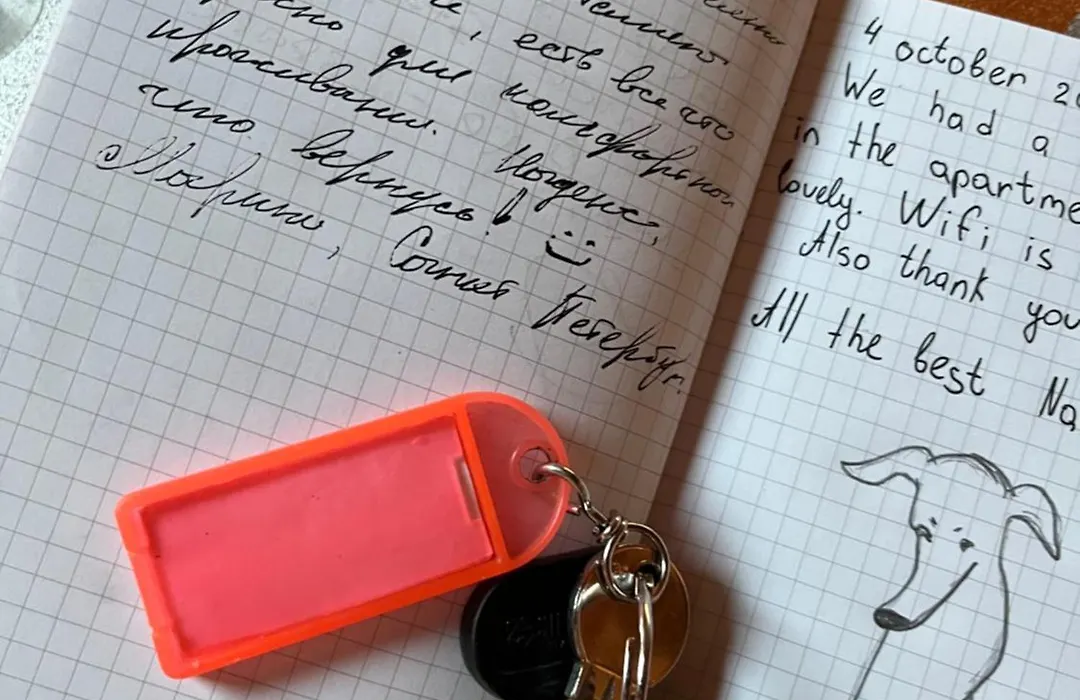 есть все что
для комфортного
проживания. Надеюсь,
что вернусь! :)
Марина, Санкт Петербург.
4 october 20
We had a
in the apartme
lovely. Wifi is
Also thank you
All the best Na